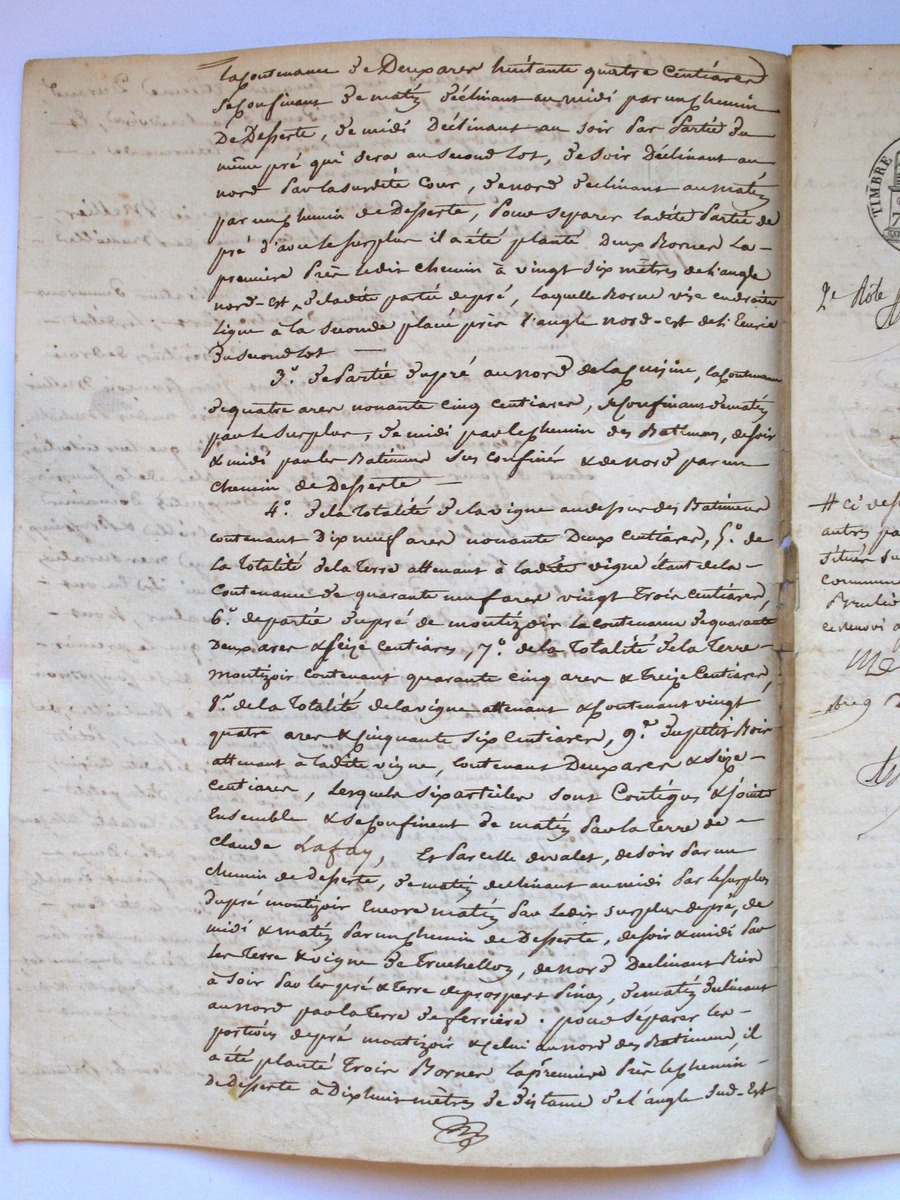 la Contenance de Deux ares huitante quatre Centiares
se Confinant de matin déclinant au midi par un chemin
De Desserte, de midi Déclinant au soir par Partie du
même pré qui sera au second lot, de soir Déclinant au
nord par la susdite Cour, de nord declinant au matin
par un chemin de Desserte, pour séparer ladite Partie de
pré d'avec le surplus il a été planté deux Bornes la
première Près ledit chemin à vingt six mètres de l'angle
nord-Est de ladite partie de pré, laquelle Borne vise en droite
Ligne à la seconde placée près l'angle nord-est de l'Ecurie
du second lot
3.° de Partie du pré au nord de la Cuisine, la Contenance
de quatre ares nonante cinq centiares, se Confinant de matin
par le surplus, de midi par le chemin des Batimens, de soir
& midi par les Batimens sus confinés & de nord par un
chemin de Desserte
4.° de la Totalité de la vigne au dessus des Batimens
contenant Dix neuf ares nonante Deux Centiares, 5.° de
La Totalité de la Terre attenant à ladite vigne étant de la
Contenance de quarante neuf ares vingt Trois Centiares,
6.° de partie du pré de montizoir la contenance de quarante
Deux ares & seize Centiares, 7.° de la Totalité de la Terre
montizoir contenant quarante cinq ares & Treize Centiares,
8.° de la Totalité de la vigne attenant & Contenant vingt
quatre ares & Cinquante six Centiares, 9.° du petit Bois
attenant à ladite vigne, Contenant Deux ares & seize
Centiares, Lesquels six articles sont Contigus & joints
Ensemble & se Confinent de matin par la Terre de
Claude Lafay, Et par celle de valet, de soir par un
chemin de Desserte, de matin declinant au midi par le surplus
du pré montizoir Encore matin par ledit surplus de pré, de
midi & matin par un chemin de Desserte, de soir & midi par
les Terre & vigne de de nord Declinant
à soir par les pré & Terre de prospert Pinay, de matin declinant
au nord par la Terre de ferriere : pour séparer les
portions de pré montizoir & celui au nord des Batimens, il
a été planté Trois Bornes la première Près le chemin
de Desserte à Dix huit mètres de distance de l'angle Sud-Est
TIMBRE
2e Rôle
# ci des
autres pa
situés su
commune
ce renvoi a